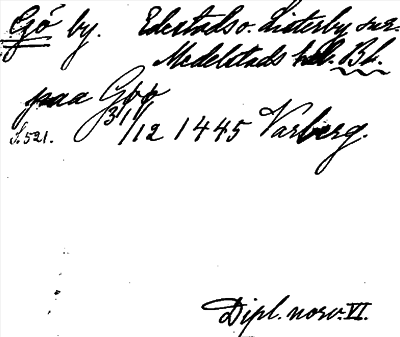 Gö by. Edestads o. Listerby snr.
Medelstads hd. Bl.
paa Goo
S. 521. 31/12 1445 Varberg.
Dipl. norv. VI.